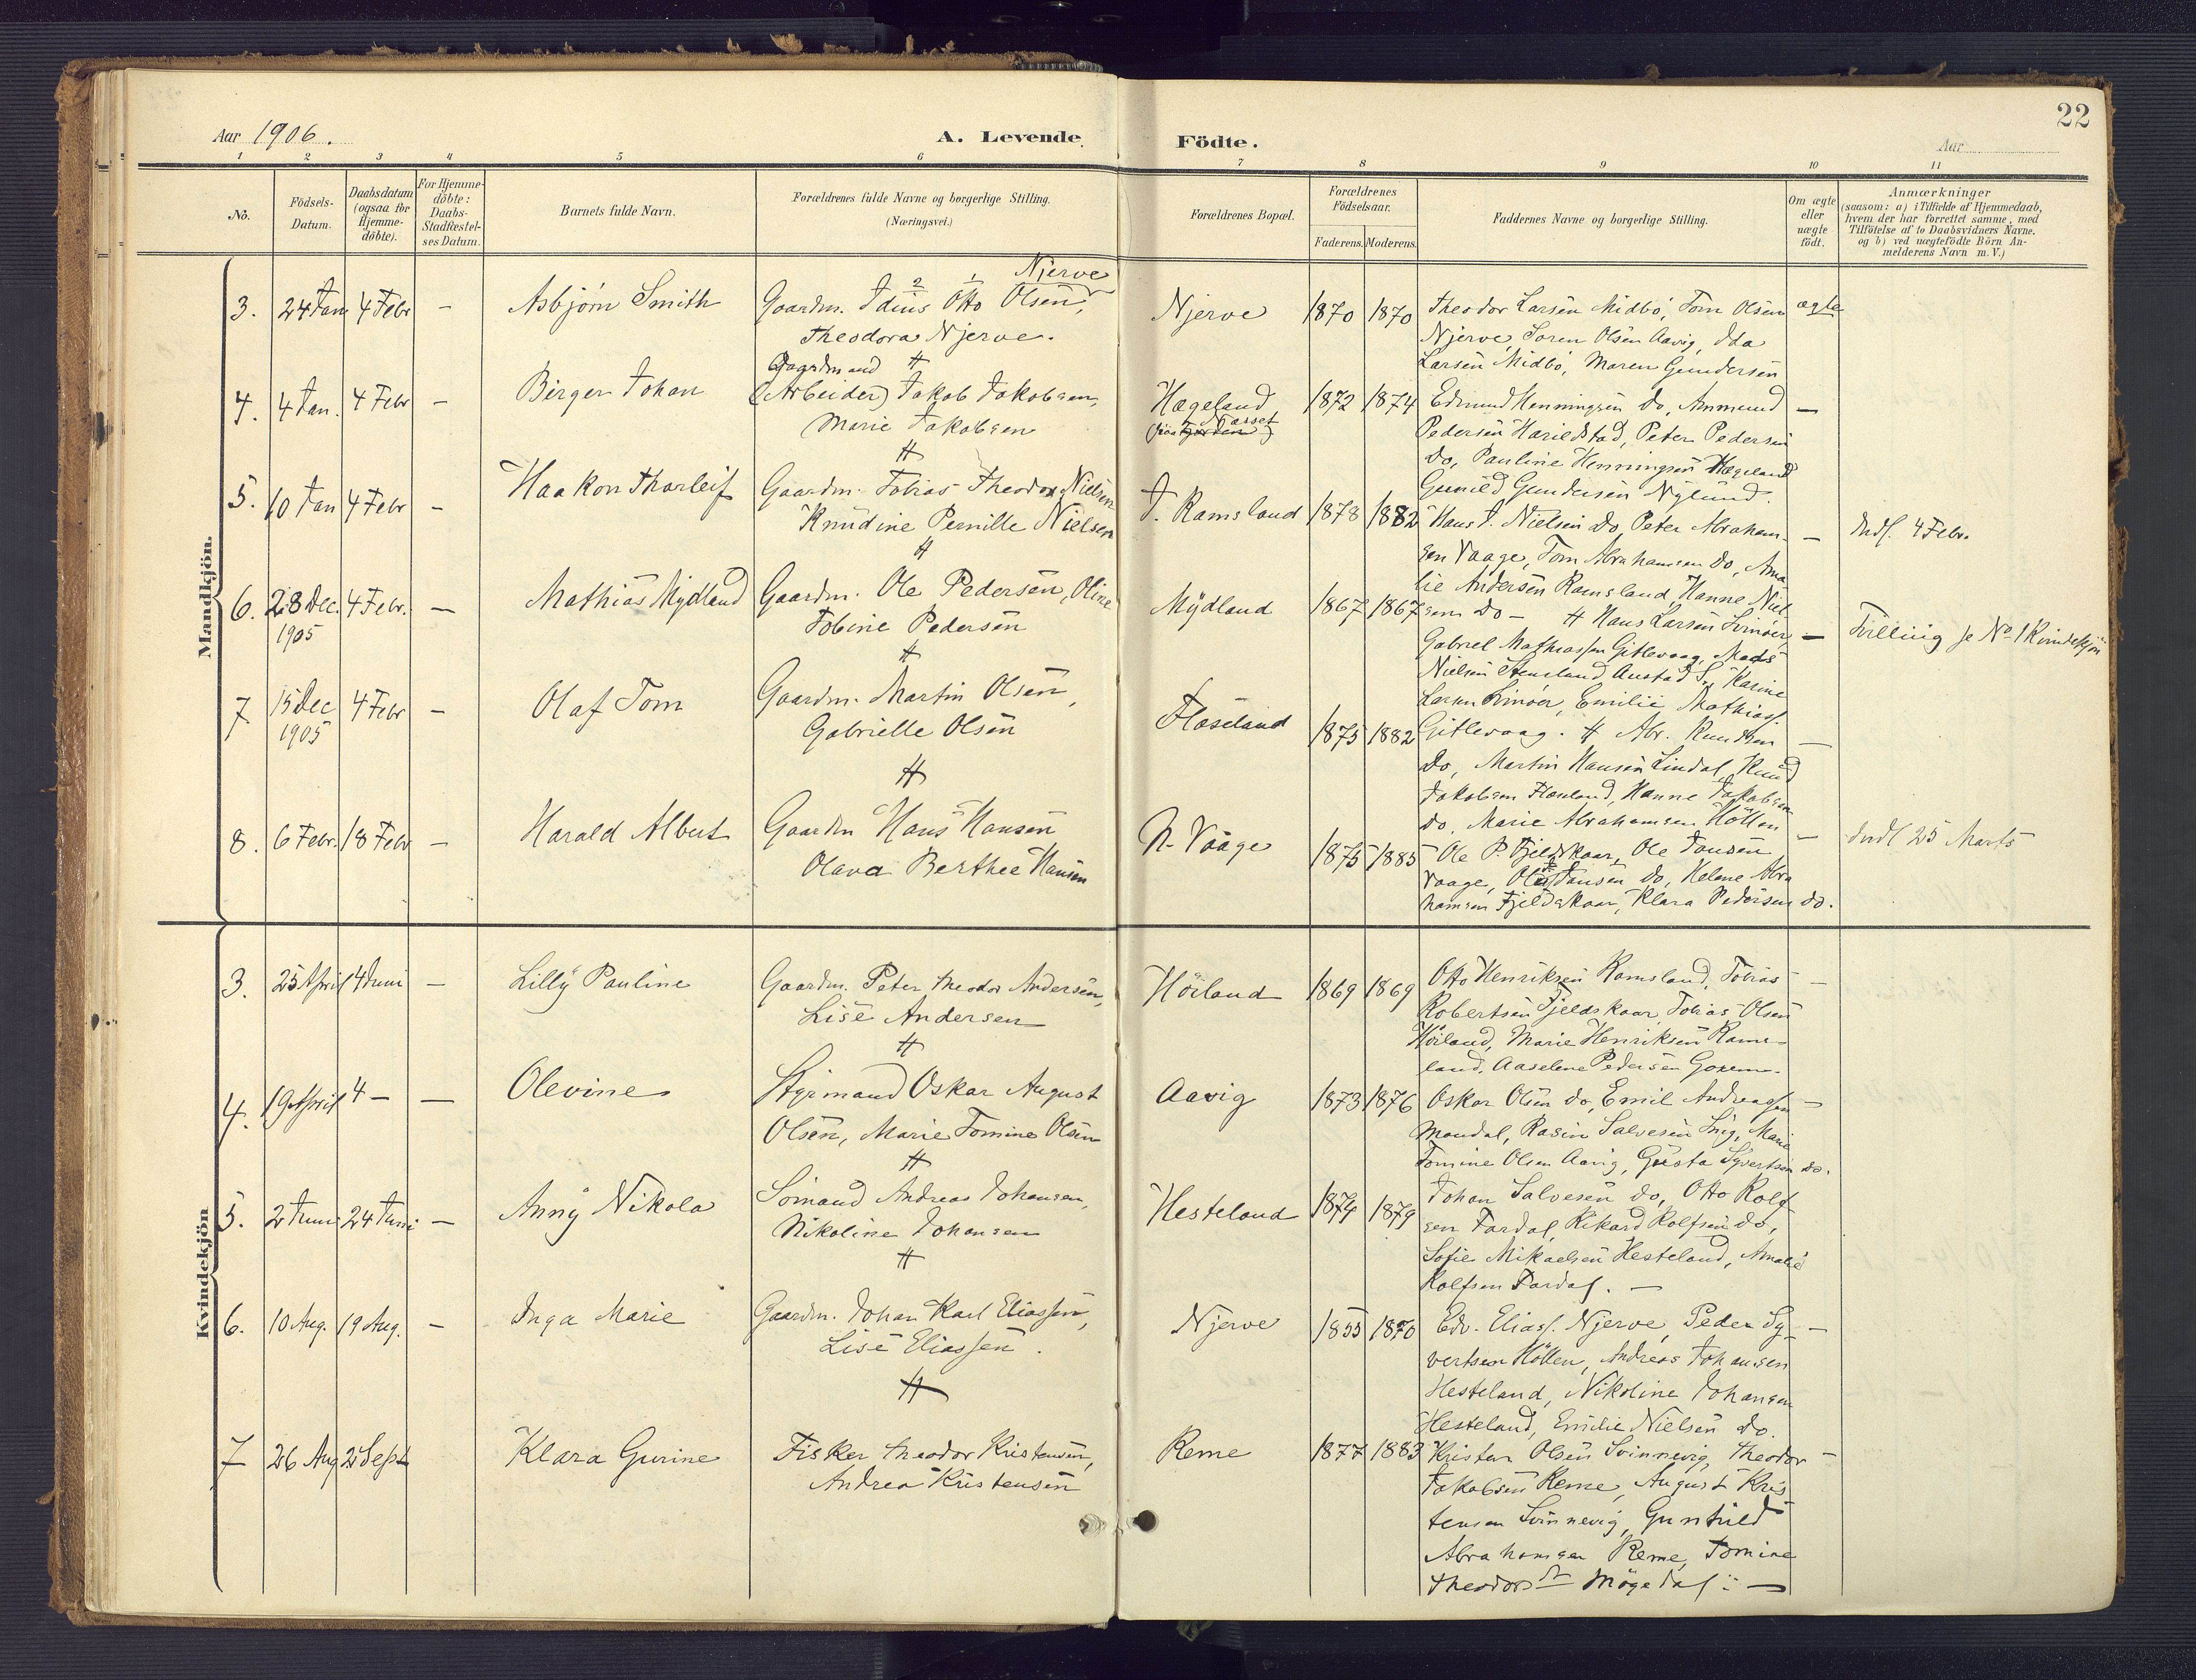 22
Aar 1906.
A. Levende Födte.
Aar
1 2 3 4 5 6 7 8 9 10 11
No.
Födsels-
Datum.
Daabsdatum
(ogsaa for
Hjemme-
döbte).
For Hjemme-
döbte:
Daabs-
Stadfæstel-
ses Datum.
Barnets fulde Navn.
Forældrenes fulde Navne og borgerlige Stilling.
(Næringsvei.)
Forældrenes Bopæl.
Forældrenes
Födselsaar.
Faderens. Moderens.
Faddernes Navne og borgerlige Stilling.
Om ægte
eller
uægte
födt.
Anmærkninger
(saasom: a) i Tilfælde af Hjemmedaab,
hvem der har forrettet samme, med
Tilföielse af to Daabsvidners Navne.
og b) ved uægtefödte Börn An-
melderens Navn m.V.)
Mandkjön.
3. 24 Jan 4 Febr - Asbjörn Smith
Njerve
Gaardm. Idius Otto Olsen,
Theodora Njerve.
Njerve 1870 1870
Theodor Larsen Midbö, Tom Olsen
Njerve, Sören Olsen Aavig, Ida
Larsen Midbö, Maren Gundersen
ægte
4. 4 Jan. 4 Febr - Birger Johan
Gaardmand
(Arbeider) Jakob Jakobsen,
Marie Jakobsen
Hægeland
Næsset
1872 1874
Edmund Henningsen do, Ammund
Pedersen Harildstad, Peter Pedersen
do, Pauline Henningsen Hægeland
Gunild Gundersen Nylund.
-
5. 10 Jan 4 Febr - Haakon Tharleif
Gaardm. Tobias Theodor Nielsen
Knudine Pernille Nielsen
J. Ramsland 1878 1882
Hans J. Nielsen do, Peter Abraham-
sen Vaage, Tom Abrahamsen do, Ama
lie Andersen Ramsland, Hanne Niel
sen do -
-
Indl. 4 Febr.
6. 28 Dec. 4 Febr. - Mathias Mydland
1905
Gaardm. Ole Pedersen, Oline
Tobine Pedersen
Mydland 1867 1867
Hans Larsen Svinöer,
Gabriel Mathiassen Gitlevaag, Mads
Nielsen Stensland Austad S., Karine
Larsen Svinöer, Emilie Mathiass.
Gitlevaag.
-
Tvilling se No 1 Kvindekjön
7 15 Dec 4 Febr - Olaf Tom
1905
Gaardm. Martin Olsen,
Gabrielle Olsen
Flaseland 1875 1882
Abr. Knudsen
do, Martin Hansen Lindal, Knud
Jakobsen Flaseland, Hanne Jakobsen
do, Marie Abrahamsen Höllen
-
8. 6 Febr. 18 Febr - Harald Albert
Gaardm Hans Hansen
Olava Berthee Hansen
N. Vaage 1875 1885
Ole P. Fjeldskaar, Ole Jansen
Vaage, Jansen do, Helene Abra
hamsen Fjeldskaar, Klara Pedersen do.
-
Indl 25 Marts
Kvindekjön
3. 25 April 4 Juni - Lilly Pauline
Gaardm. Peter Theodor Andersen,
Lise Andersen
Höiland 1869 1869
Otto Henriksen Ramsland, Tobias
Robertsen Fjeldskaar, Tobias Olsen
Höiland, Marie Henriksen Rams-
land, Aaselene Pedersen
-
4. 19 April 4 - - Olevine
Styrmand Oskar August
Olsen, Marie Tomine Olsen
Aavig 1873 1876
Oskar Olsen do, Emil Andreassen
Mandal, Rasin Salvesen Snig, Marie
Tomine Olsen Aavig, Gusta Syvertsen do.
-
5. 2 Juni 24 Juni - Anny Nikola
Sömand Andreas Johansen,
Nikoline Johansen
Hesteland 1874 1879
Johan Salvesen do, Otto Rolf-
sen Tardal, Rikard Rolfsen do,
Sofie Mikaelsen Hesteland, Amalie
Rolfsen Tardal. -
6. 10 Aug. 19 Aug. - Inga Marie
Gaardm. Johan Karl Eliassen,
Lise Eliassen.
Njerve 1855 1870
Edv. Eliass. Njerve, Peder Sy-
vertsen Höllen, Andreas Johansen
Hesteland, Nikoline Johansen
Hesteland, Emilie Nielsen do.
-
7 26 Aug 2 Sept Klara Gurine
Fisker Theodor Kristensen,
Andrea Kristensen
Reme 1877 1883
Kristen Olsen Svinnevig, Theodor
Jakobsen Reme, August Kris
tensen Svinnevig, Gunhild
Abrahamsen Reme, Tomine
Theodors Mögedal -
-